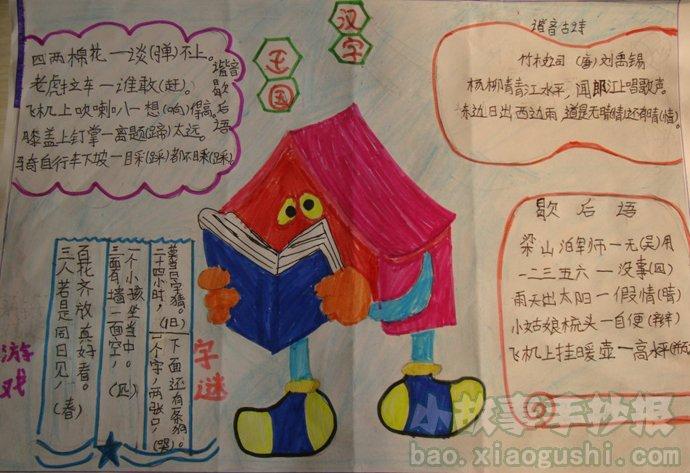 汉字
王国
谐音歇后语
四两棉花一谈(弹)不上。
老虎拉车一谁敢(赶)。
飞机上吹喇叭一想(响)得高。
膝盖上钉掌一离题(蹄)太远。
骑自行车下坡一目采(踩)都不目采(踩)。
谐音古诗
竹枝词 (唐) 刘禹锡
杨柳青青江水平,闻郎江上唱歌声。
东边日出西边雨 道是无晴(情)还有晴(情)。
歇后语
梁山泊军师一无(吴)用
一二三五六一没事(四)
雨天出太阳一假情(晴)
小姑娘梳头一自便(辫)
飞机上挂暖壶一高水平(瓶)
字谜
游戏
二十四小时,(旧)
下面还有条狗。
一个字,两张口,
(哭)
一个小孩坐当中。
三面有墙一面空,
(四)
百花齐放真好看。
三人若是同日见,
(春)
小故事手抄报
bao.xiaogushi.com